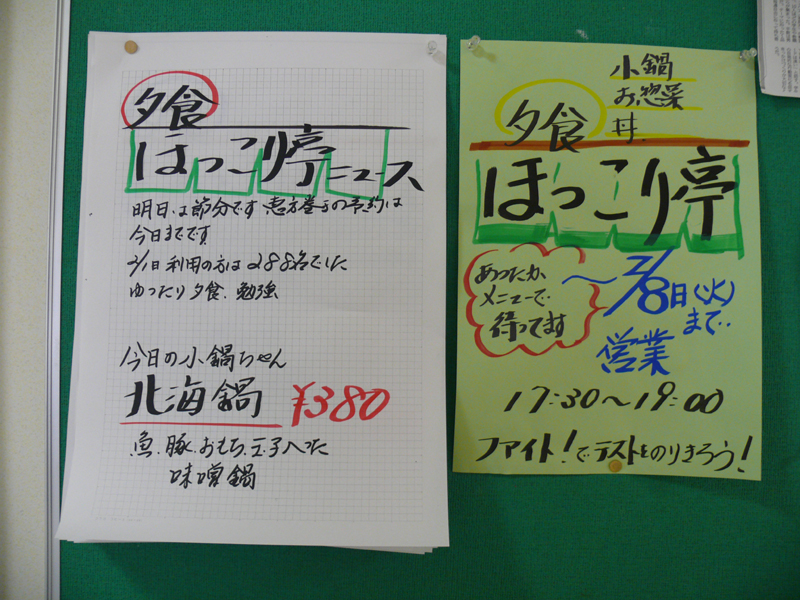 夕食
ほっこり亭ニュース
明日は節分です 恵方巻きの予約は
今日までです
2/1日利用の方は288名でした
ゆったり夕食、勉強
今日の小鍋ちゃん
北海鍋 ¥380
魚、豚、おもち、玉子入った
味噌鍋
小鍋
お惣菜
丼
夕食
ほっこり亭
あったか
メニューで
待ってます
～2/8日(火)
まで
営業
17:30～19:00
ファイト！でテストをのりきろう！